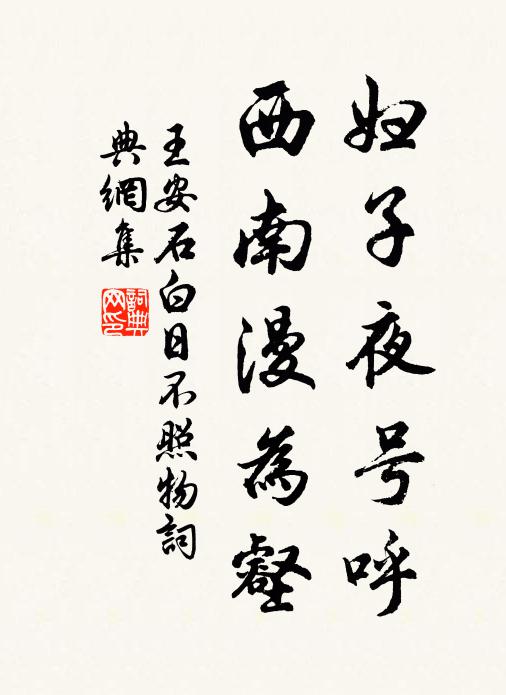 妇子夜号呼
西南漫為壑
王安石白日不照物詞
典網集
詞典网印